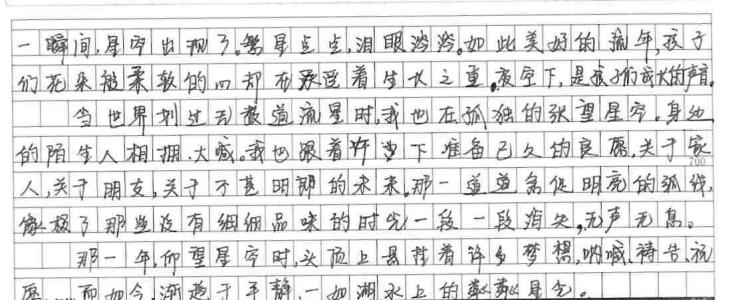 一瞬间,星空出现了。繁星点点,泪眼涔涔。如此美好的流年,孩子
们花朵般柔软的心却在承受着生长之重。夜空下,是孩子们成长的声音。
当世界划过无数道流星时,我也在孤独的张望星空。身边
的陌生人相拥、大喊。我也跟着许下准备已久的良愿,关于家
700
人,关于朋友,关于不甚明朗的未来。那一道道急促明亮的弧线,
像极了那些没有细细品味的时光一段一段消失,无声无息。
那一年,仰望星空时,头顶上悬挂着许多梦想,呐喊、祷告、祝
愿。而如今,渐趋于平静,一如湖水上的粼粼星光。